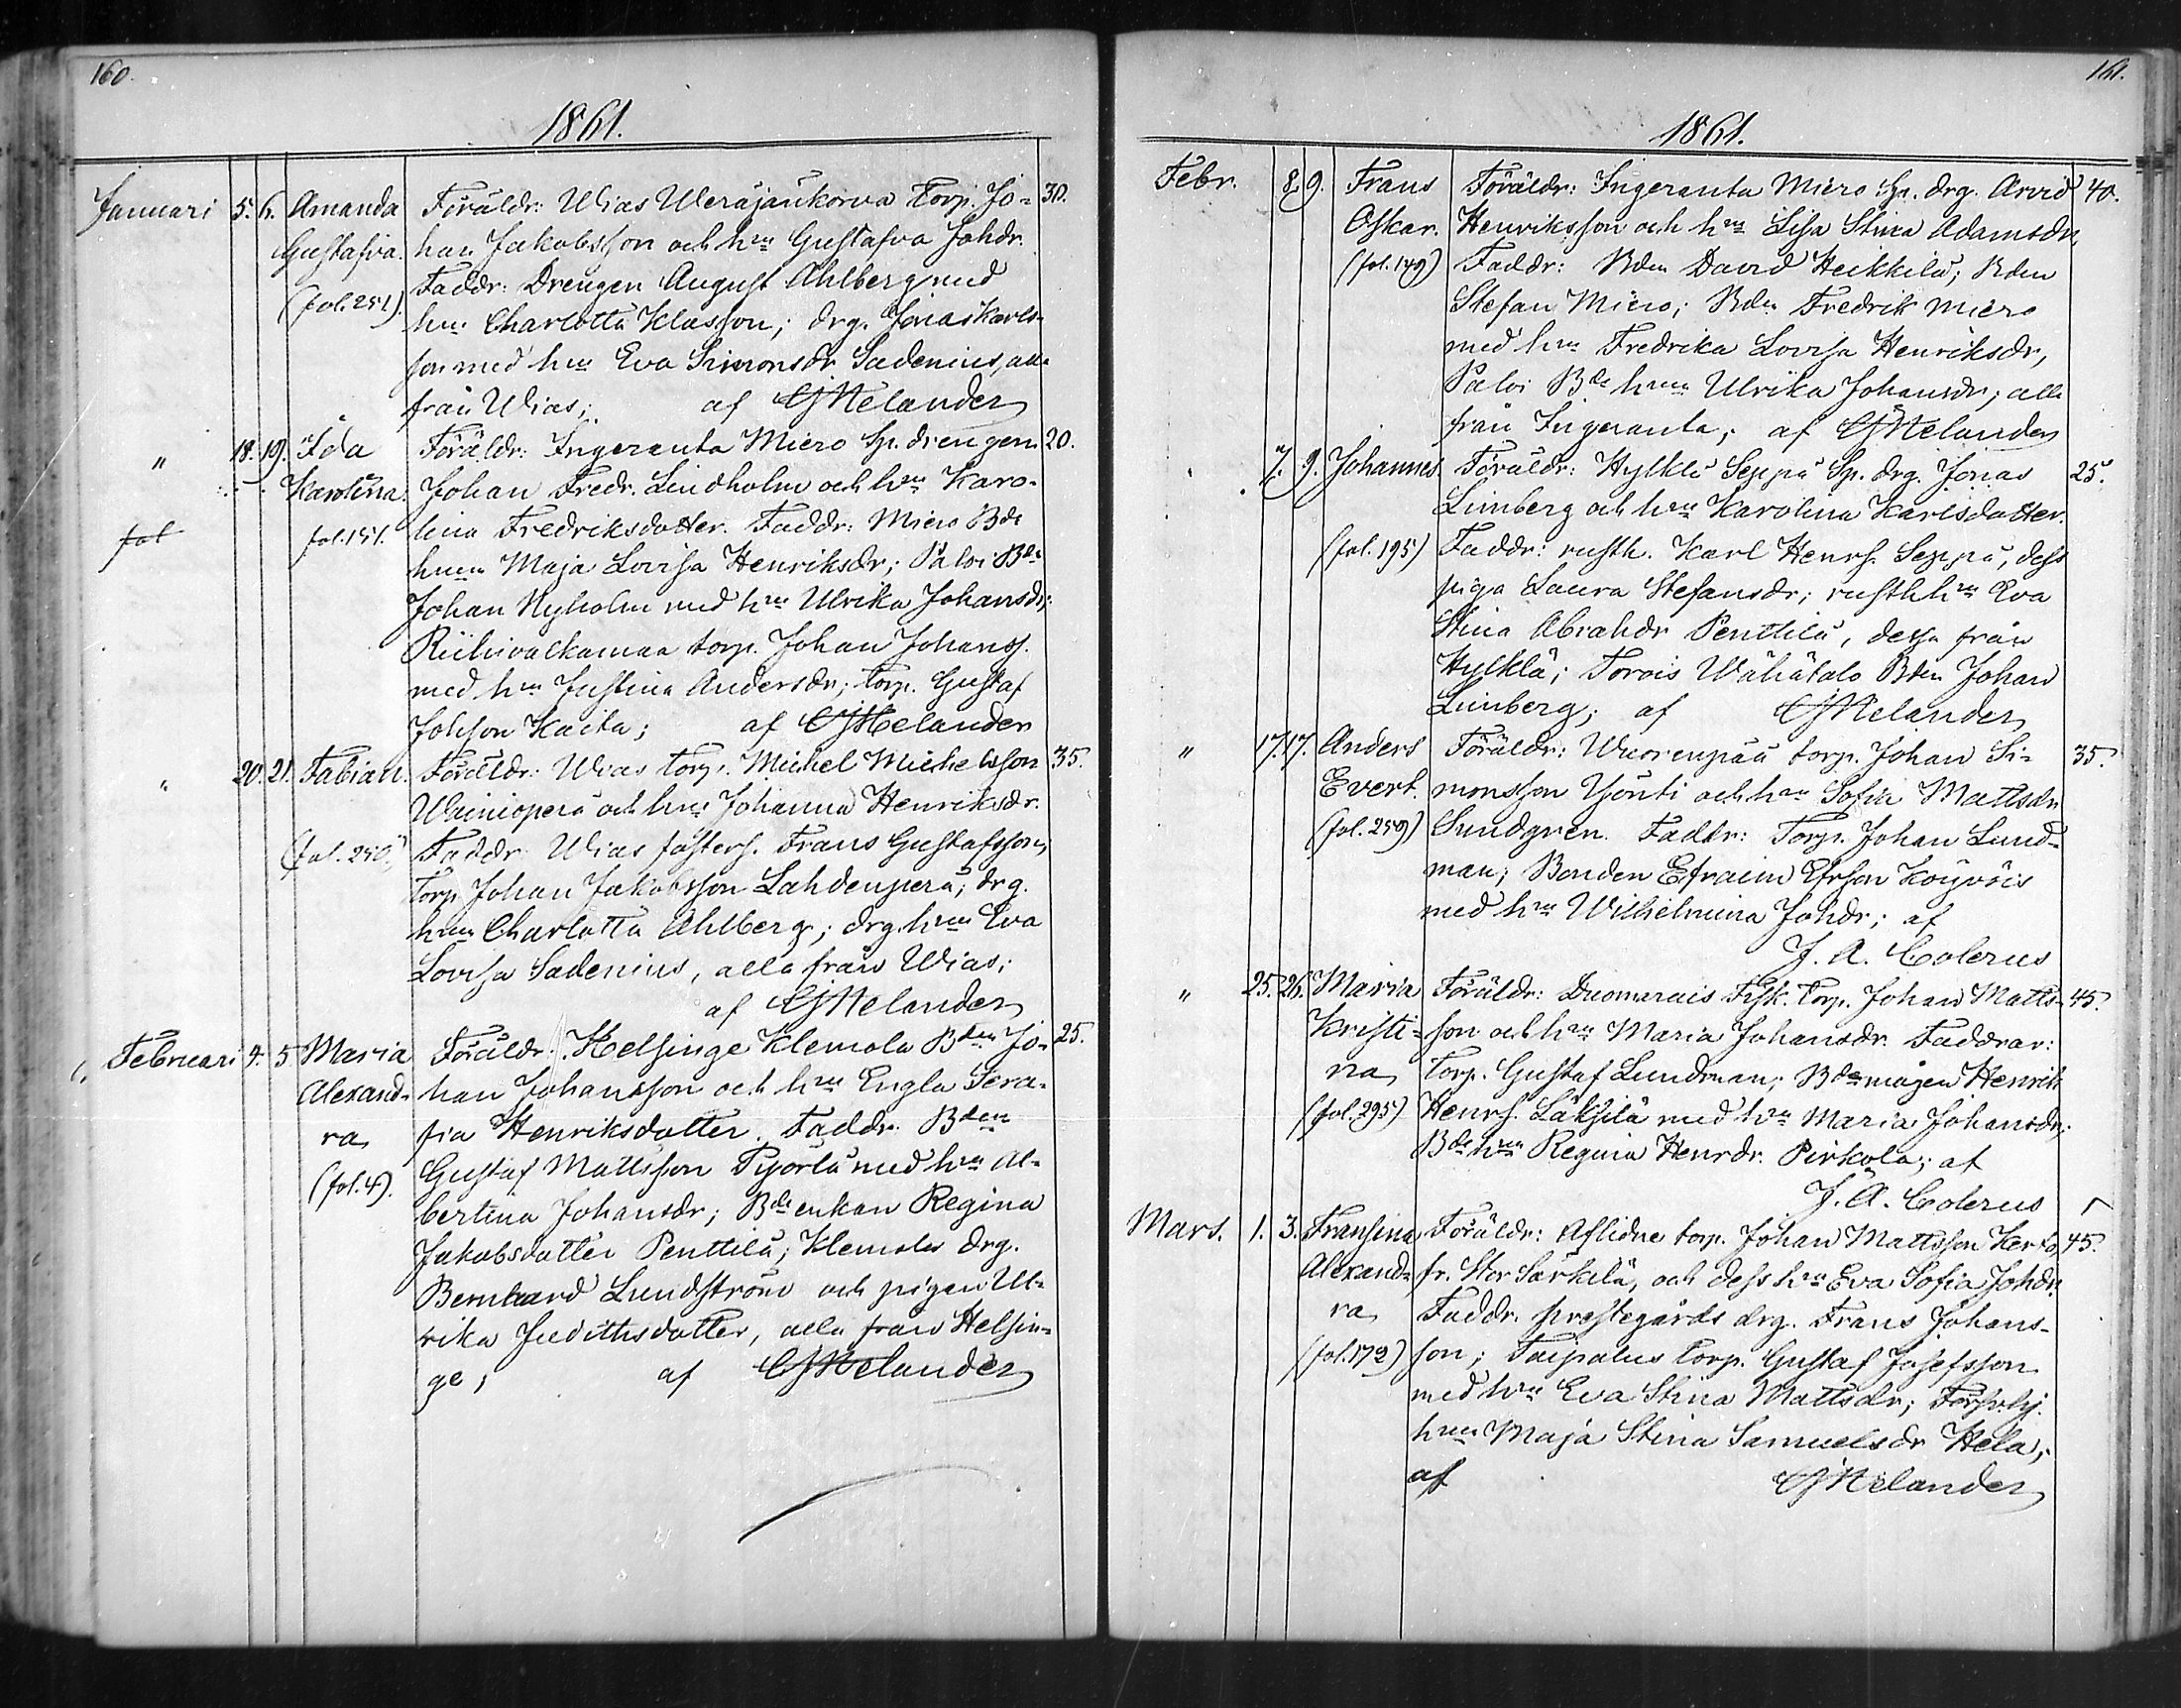 160.
1861.
Januari 5. 6. Amanda Föräldr: Wias Weräjänkorva Torp. Jo- 30.
Gustafva. han Jakobsson och hru Gustafva Johdr.
Faddr: Drengen August Ahlberg med
(fol. 251). hru Charlotta Klasson; drg. Jonas Karls-
son med hru Eva Simonsdr Sadenius, alla
från Wias; af CJMelander
" 18. 19. Ida Föräldr: Ingeranta Miero Sp. drengen 20.
Karolina. Johan Fredr. Lindholm och hru Karo-
fol fol. 151. lina Fredriksdotter. Faddr: Miero Bde
hrun Maja Lovisa Henriksdr; Paloi Bde
Johan Nyholm med hru Ulrika Johansdr;
Riihivalkamaa torp. Johan Johanss.
med hru Justina Andersdr; Torp. Gustaf
Johsson Kaita; af CJMelander
" 20. 21. Fabian. Föräldr: Wias torp. Michel Michelsson 35.
Wainiopera och hru Johanna Henriksdr.
(fol. 250) Faddr: Wias fosters. Frans Gustafsson,
Torp. Johan Jakobsson Lahdenpera; drg.
hrun Charlotta Ahlberg; drg. hru Eva
Lovisa Sadenius, alla från Wias;
af CJMelander
Februari 4. 5 Maria Föräldr: Helsinge Klemola Bden Jo- 25.
Alexand- han Johansson och hru Engla Sera-
ra, fia Henriksdotter. Faddr. Bden
(fol. 4). Gustaf Mattsson Pyörlä med hru Al-
bertina Johansdr; Bde enkan Regina
Jakobsdotter Penttilä; Klemola drg.
Bernhard Lundström och pigan Ul-
rika Judithsdotter, alla från Helsin-
ge; af CJMelander
161.
1861.
Febr. 8. 9. Frans Föräldr: Ingeranta Miero Sp. drg. Arvid 40.
Oskar. Henriksson och hru Lisa Stina Adamsdr,
(fol. 149) Faddr: Bden David Heikkilä; Bden
Stefan Miero; Bden Fredrik Miero
med hru Fredrika Lovisa Henriksdr,
Paloi Bde hrun Ulrika Johansdr; alla
från Ingeranta; af CJMelander
7. 9. Johannes. Föräldr: Hylkilä Seppä Sp. drg. Jonas 25.
Limberg och hru Karolina Karlsdotter.
(fol. 195) Faddr: rusth. Karl Henrs. Seppä, dess
piga Laura Stefansdr; rusth hru Eva
Stina Abrahdr Penttilä, dessa från
Hylklä; Torois Wähätalo Bden Johan
Limberg; af CJMelander
" 17. 17. Anders Föräldr: Wuorenpää torp. Johan Si- 35.
Evert. monsson Yönti och hru Sofia Mattsdr
(fol. 259) Sundgren. Faddr: Torp. Johan Lund-
man; Bonden Efraim Efrson Köyvöis
med hru Wilhelmina Johdr; af
J. A. Colerus
" 25. 26. Maria Föräldr: Duomarais Fisk. Torp. Johan Matts- 45.
Kristi- son och hru Maria Johansdr. Faddrar:
na, Torp. Gustaf Lundman; Bdemågen Henrik
(fol. 295) Henrs. Läksilä med hru Maria Johansdr;
Bde hru Regina Henrdr. Pirkola; af
J. A. Colerus
Mars. 1. 3. Fransina Föräldr: Aflidne torp. Johan Mattsson Kerto 45.
Alexand- fr. Stor Särkilä, och dess hru Eva Sofia Johdr.
ra, Faddr. prestegårds drg. Frans Johans-
(fol. 172) son; Taipalus Torp. Gustaf Josefsson
med hru Eva Stina Mattsdr;
hrun Maja Stina Samuelsdr Hela;
af CJMelander